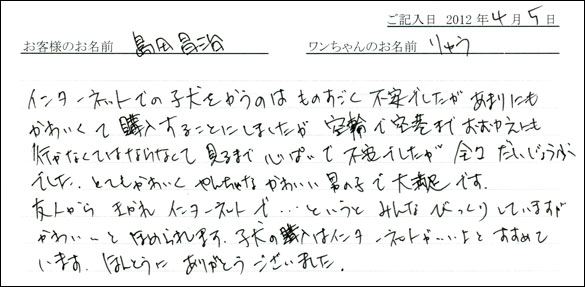 ご記入日 2012年4月5日
お客様のお名前 島田昌治 ワンちゃんのお名前 りゅう
インターネットでの子犬をかうのは ものすごく 不安でしたが あまりにも
かわいくて 購入することにしましたが 空輸で空港まで おむかえにも
行かなくてはならなくて 見るまで 心ぱいで 不安でしたが 全々 だいじょうぶ
でした。とてもかわいく やんちゃな かわいい 男の子で 大満足です。
友人から きかれ インターネットで…というと みんな びっくりしていますが
かわいいと ほめられます。子犬の購入はインターネットがいいよと すすめて
います。ほんとうに ありがとうございました。